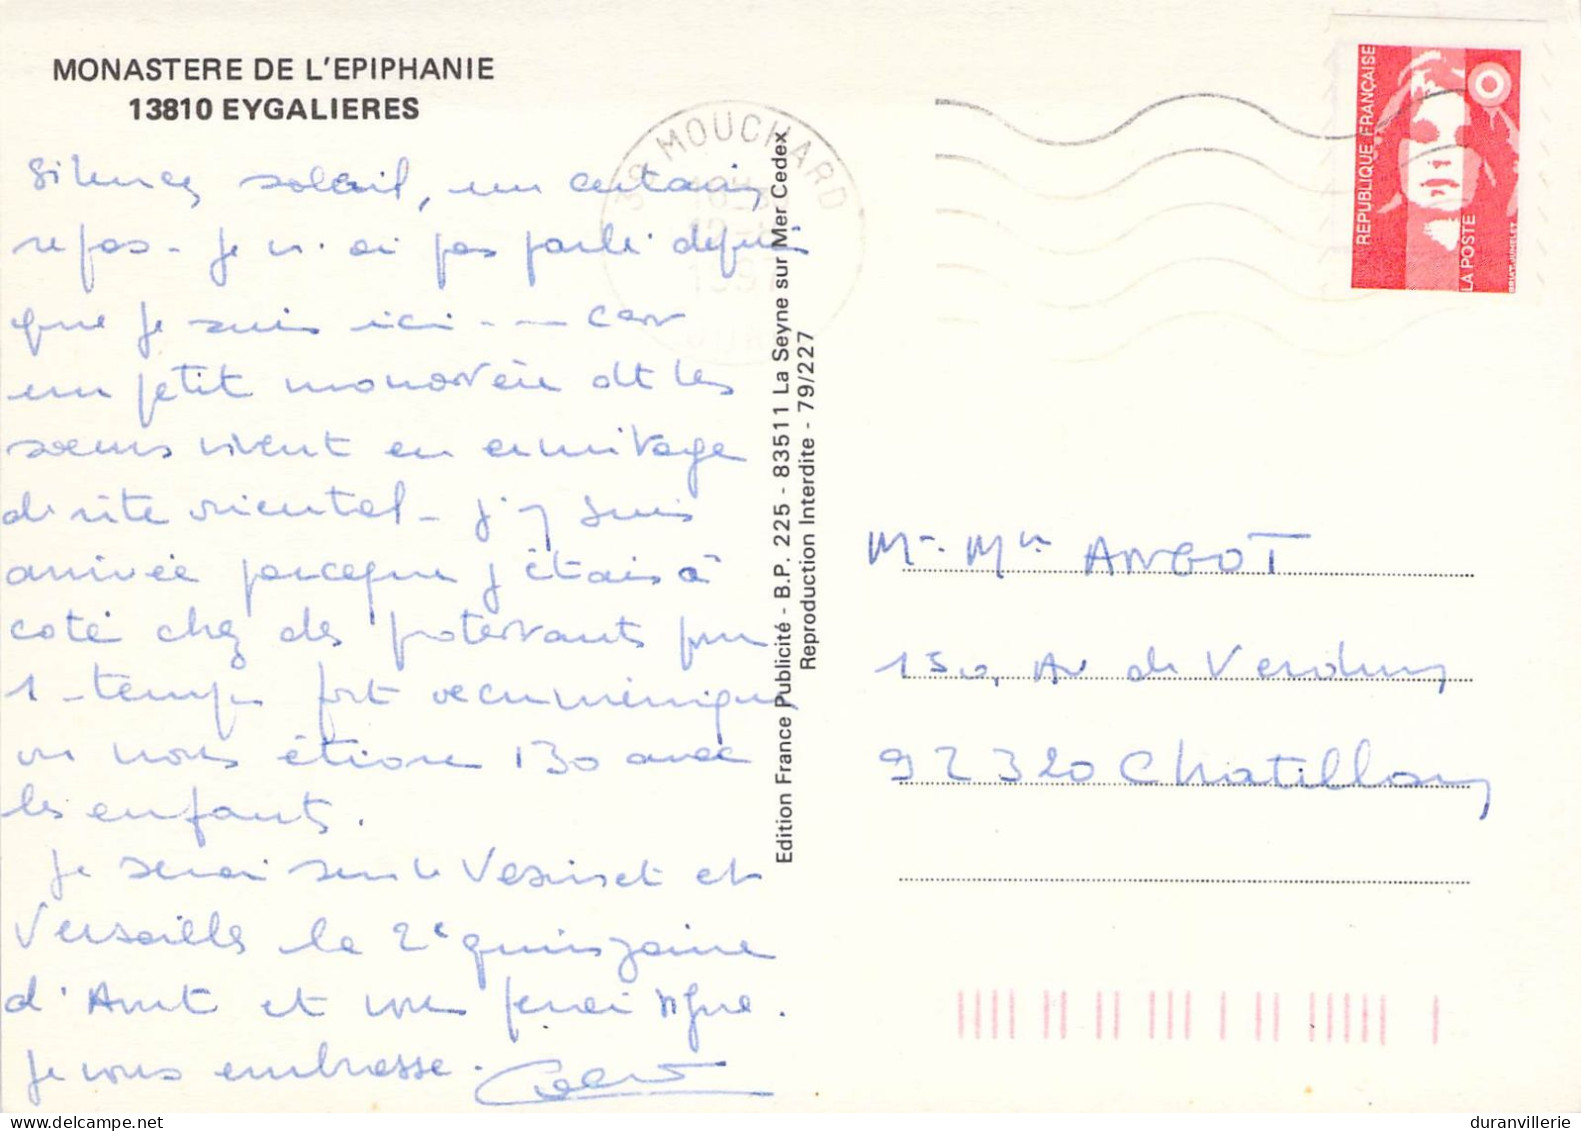 MONASTERE DE L'EPIPHANIE
13810 EYGALIERES
Silence, soleil, un certain
repos - Je n'ai pas parlé depuis
que je suis ici - - car
un petit monastère dt les
soeurs vivent en ermitage
de rite oriental - J'y suis
arrivée parceque j'étais à
coté chez des protestants pour
1 - temps fort oecuménique,
où nous étions 130 avec
les enfants.
Je serai sur le Vésinet et
Versailles la 2e quinzaine
d'Aout et vous ferai signe.
Je vous embrasse.
39 MOUCHARD
1997
JURA
REPUBLIQUE FRANÇAISE
LA POSTE
Edition France Publicité - B.P. 225 - 83511 La Seyne sur Mer Cedex
Reproduction Interdite - 79/227
Mr. Mme ANGOT
130, Av de Verdun,
92320 Chatillon,
duranvillerie